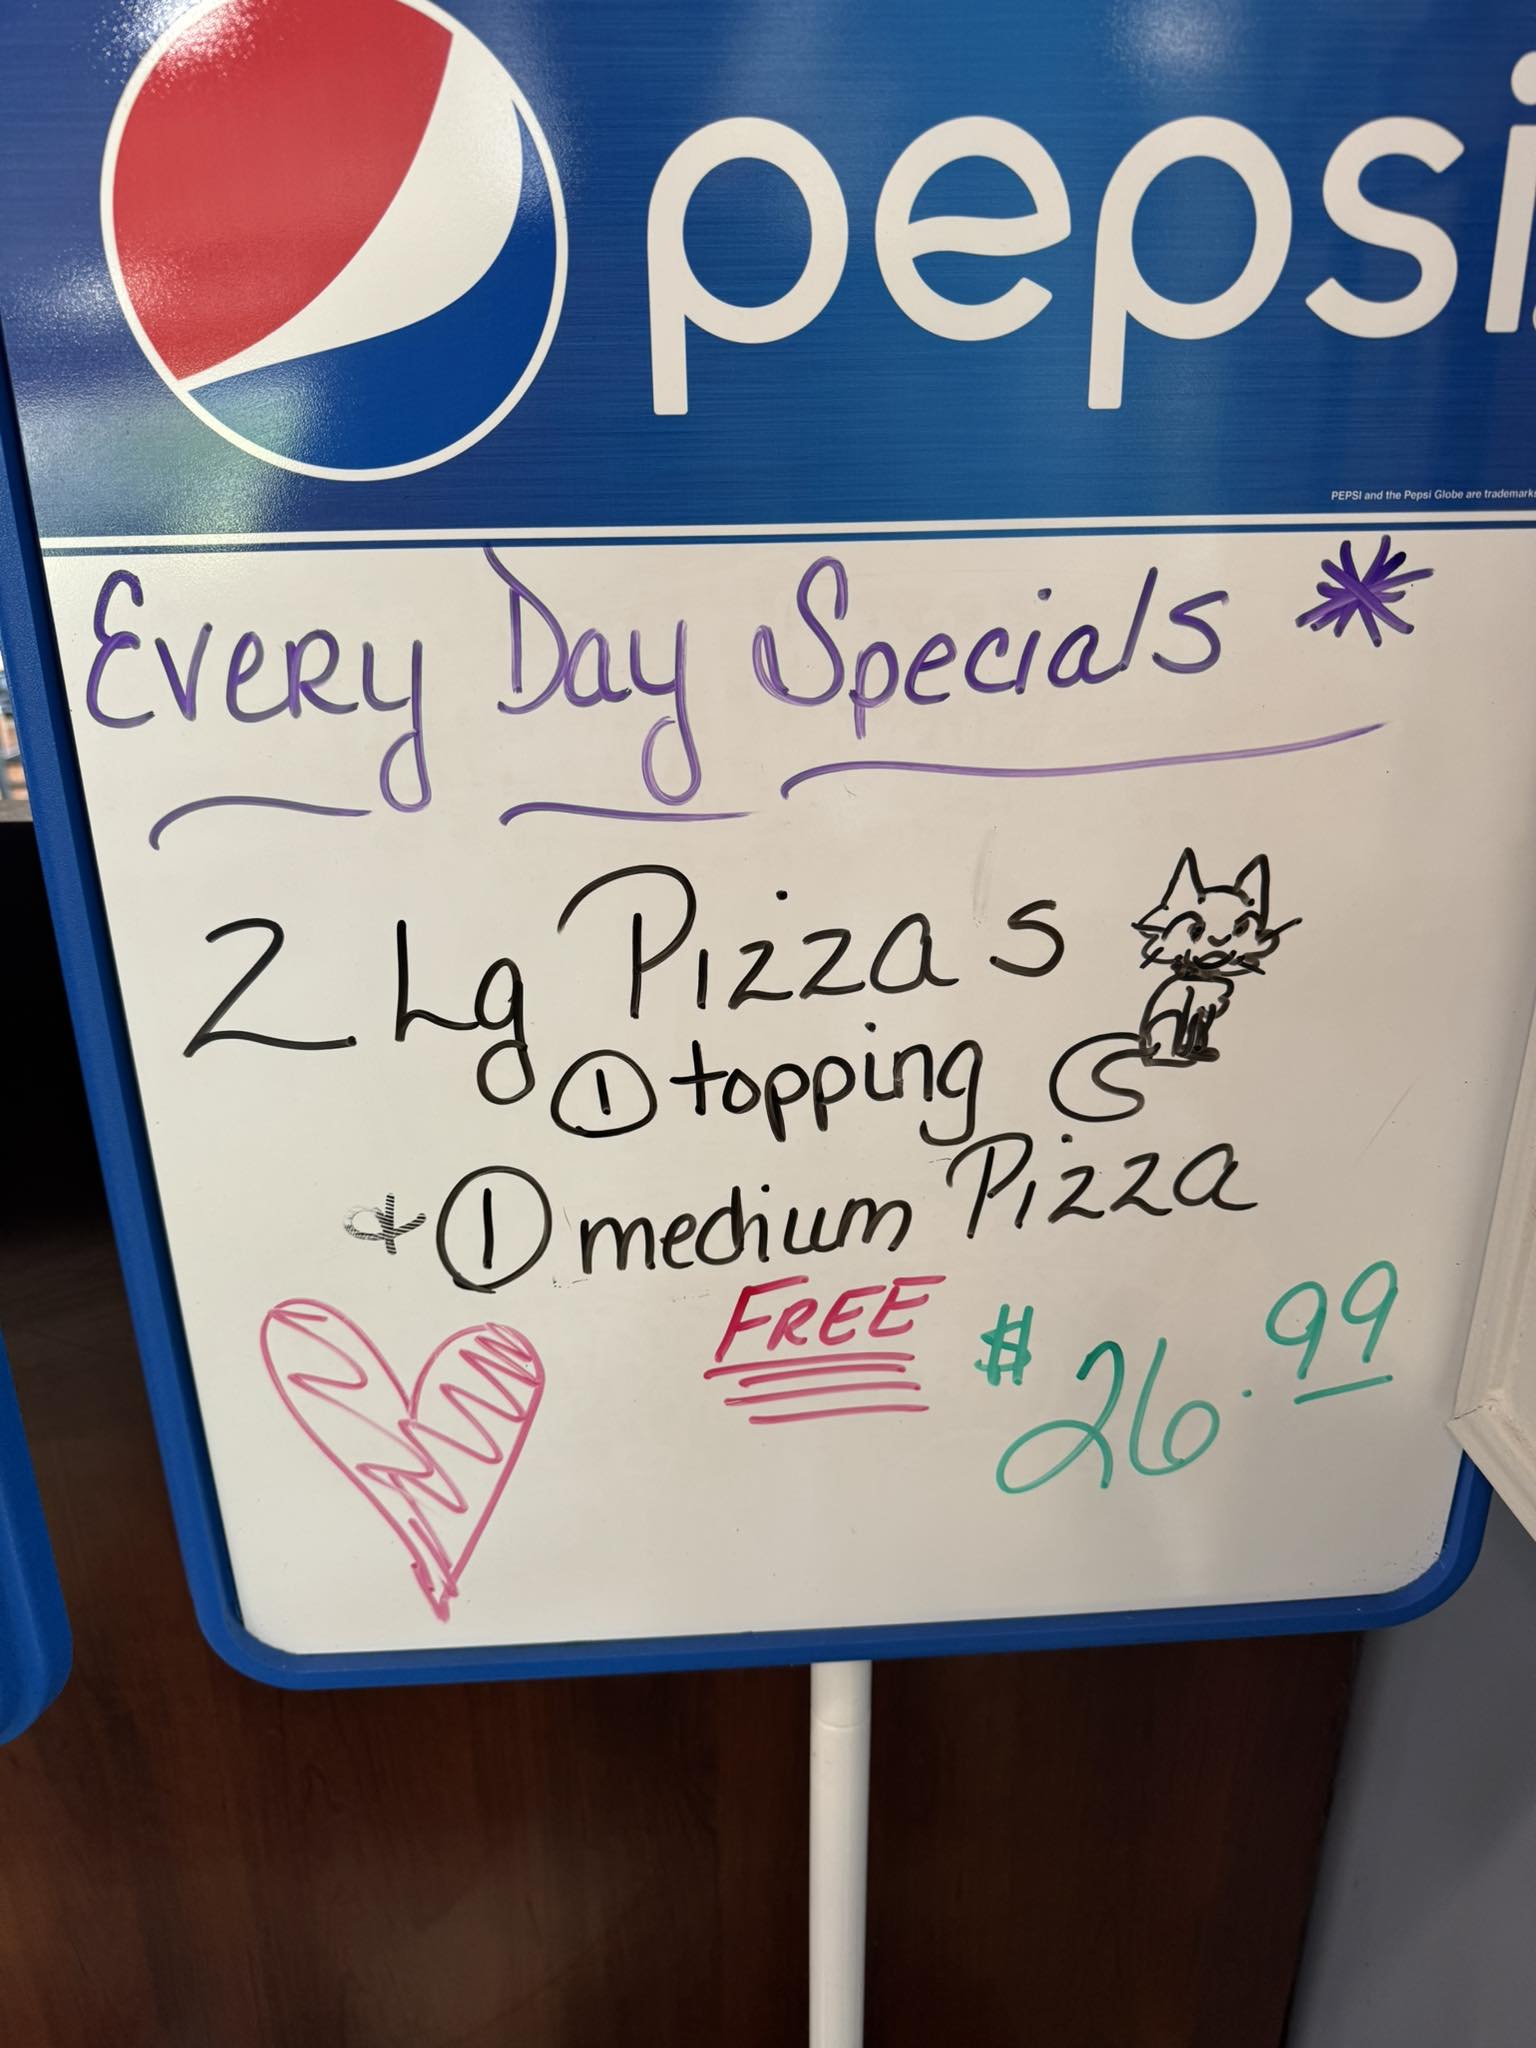 pepsi
PEPSI and the Pepsi Globe are trademarks
Every Day Specials *
2 Lg Pizzas
① topping
& ① medium Pizza
FREE $26.99